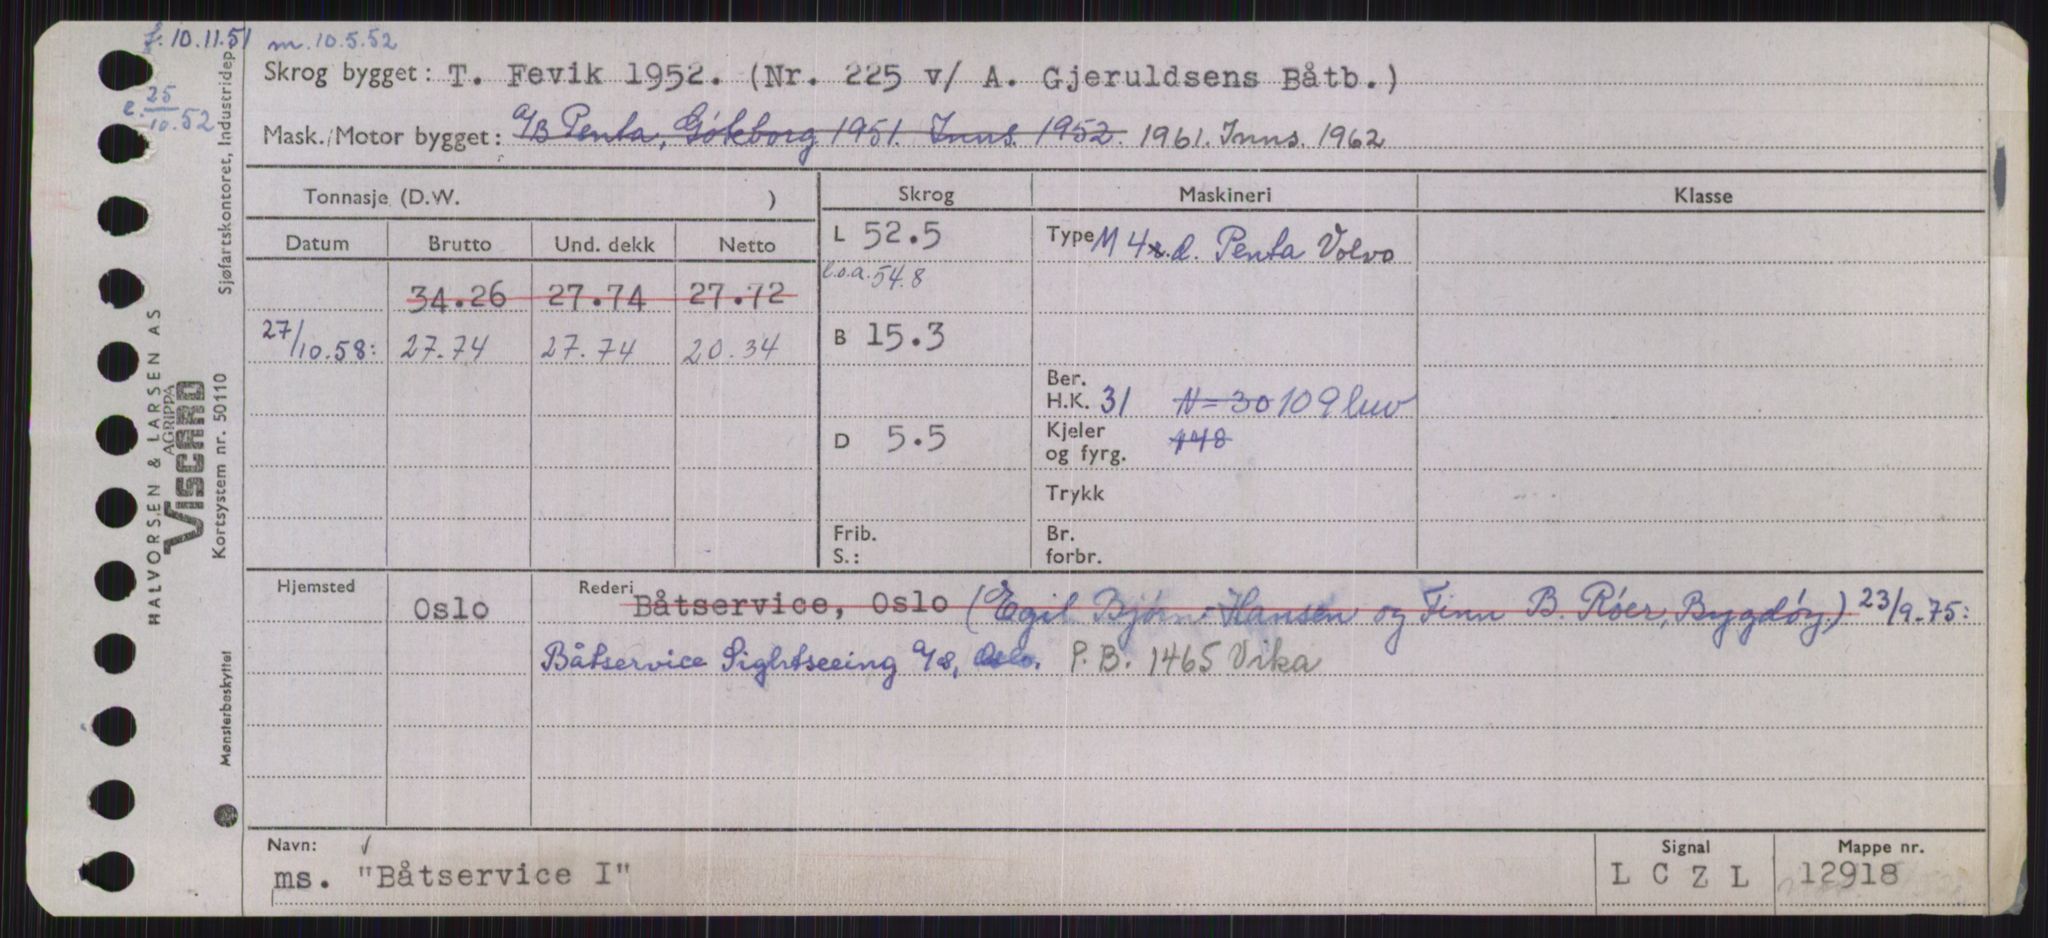 f. 10.11.51 m. 10.5.52
Skrog bygget: T. Fevik 1952. (Nr. 225 v/ A. Gjeruldsens Båtb.)
e. 25/10.52
Mask./Motor bygget: A/B Penta, Göteborg 1951. Inns. 1952. 1961. Inns. 1962
Tonnasje (D.W. ) Skrog Maskineri Klasse
Datum Brutto Und. dekk Netto L 52.5 Type M 4 s. d. Penta Volvo
l.o.a. 54.8
34.26 27.74 27.72
27/10.58: 27.74 27.74 20.34 B 15.3
Ber.
H.K. 31 N=30 109 luv
D 5.5 Kjeler
og fyrg. 148
Trykk
Frib. Br.
S.: forbr.
Hjemsted Oslo Rederi Båtservice, Oslo (Egil Bjørn-Hansen og Finn B. Röer, Bygdöy.) 23/9-75:
Båtservice Sightseeing A/S, Oslo. P.B. 1465 Vika
Navn: Signal Mappe nr.
ms. "Båtservice I" L C Z L 12918
Sjøfartskontoret, Industridep
HALVORSEN & LARSEN AS
AGRIPPA
VISCARD
Kortsystem nr. 50110
Mønsterbeskyttet